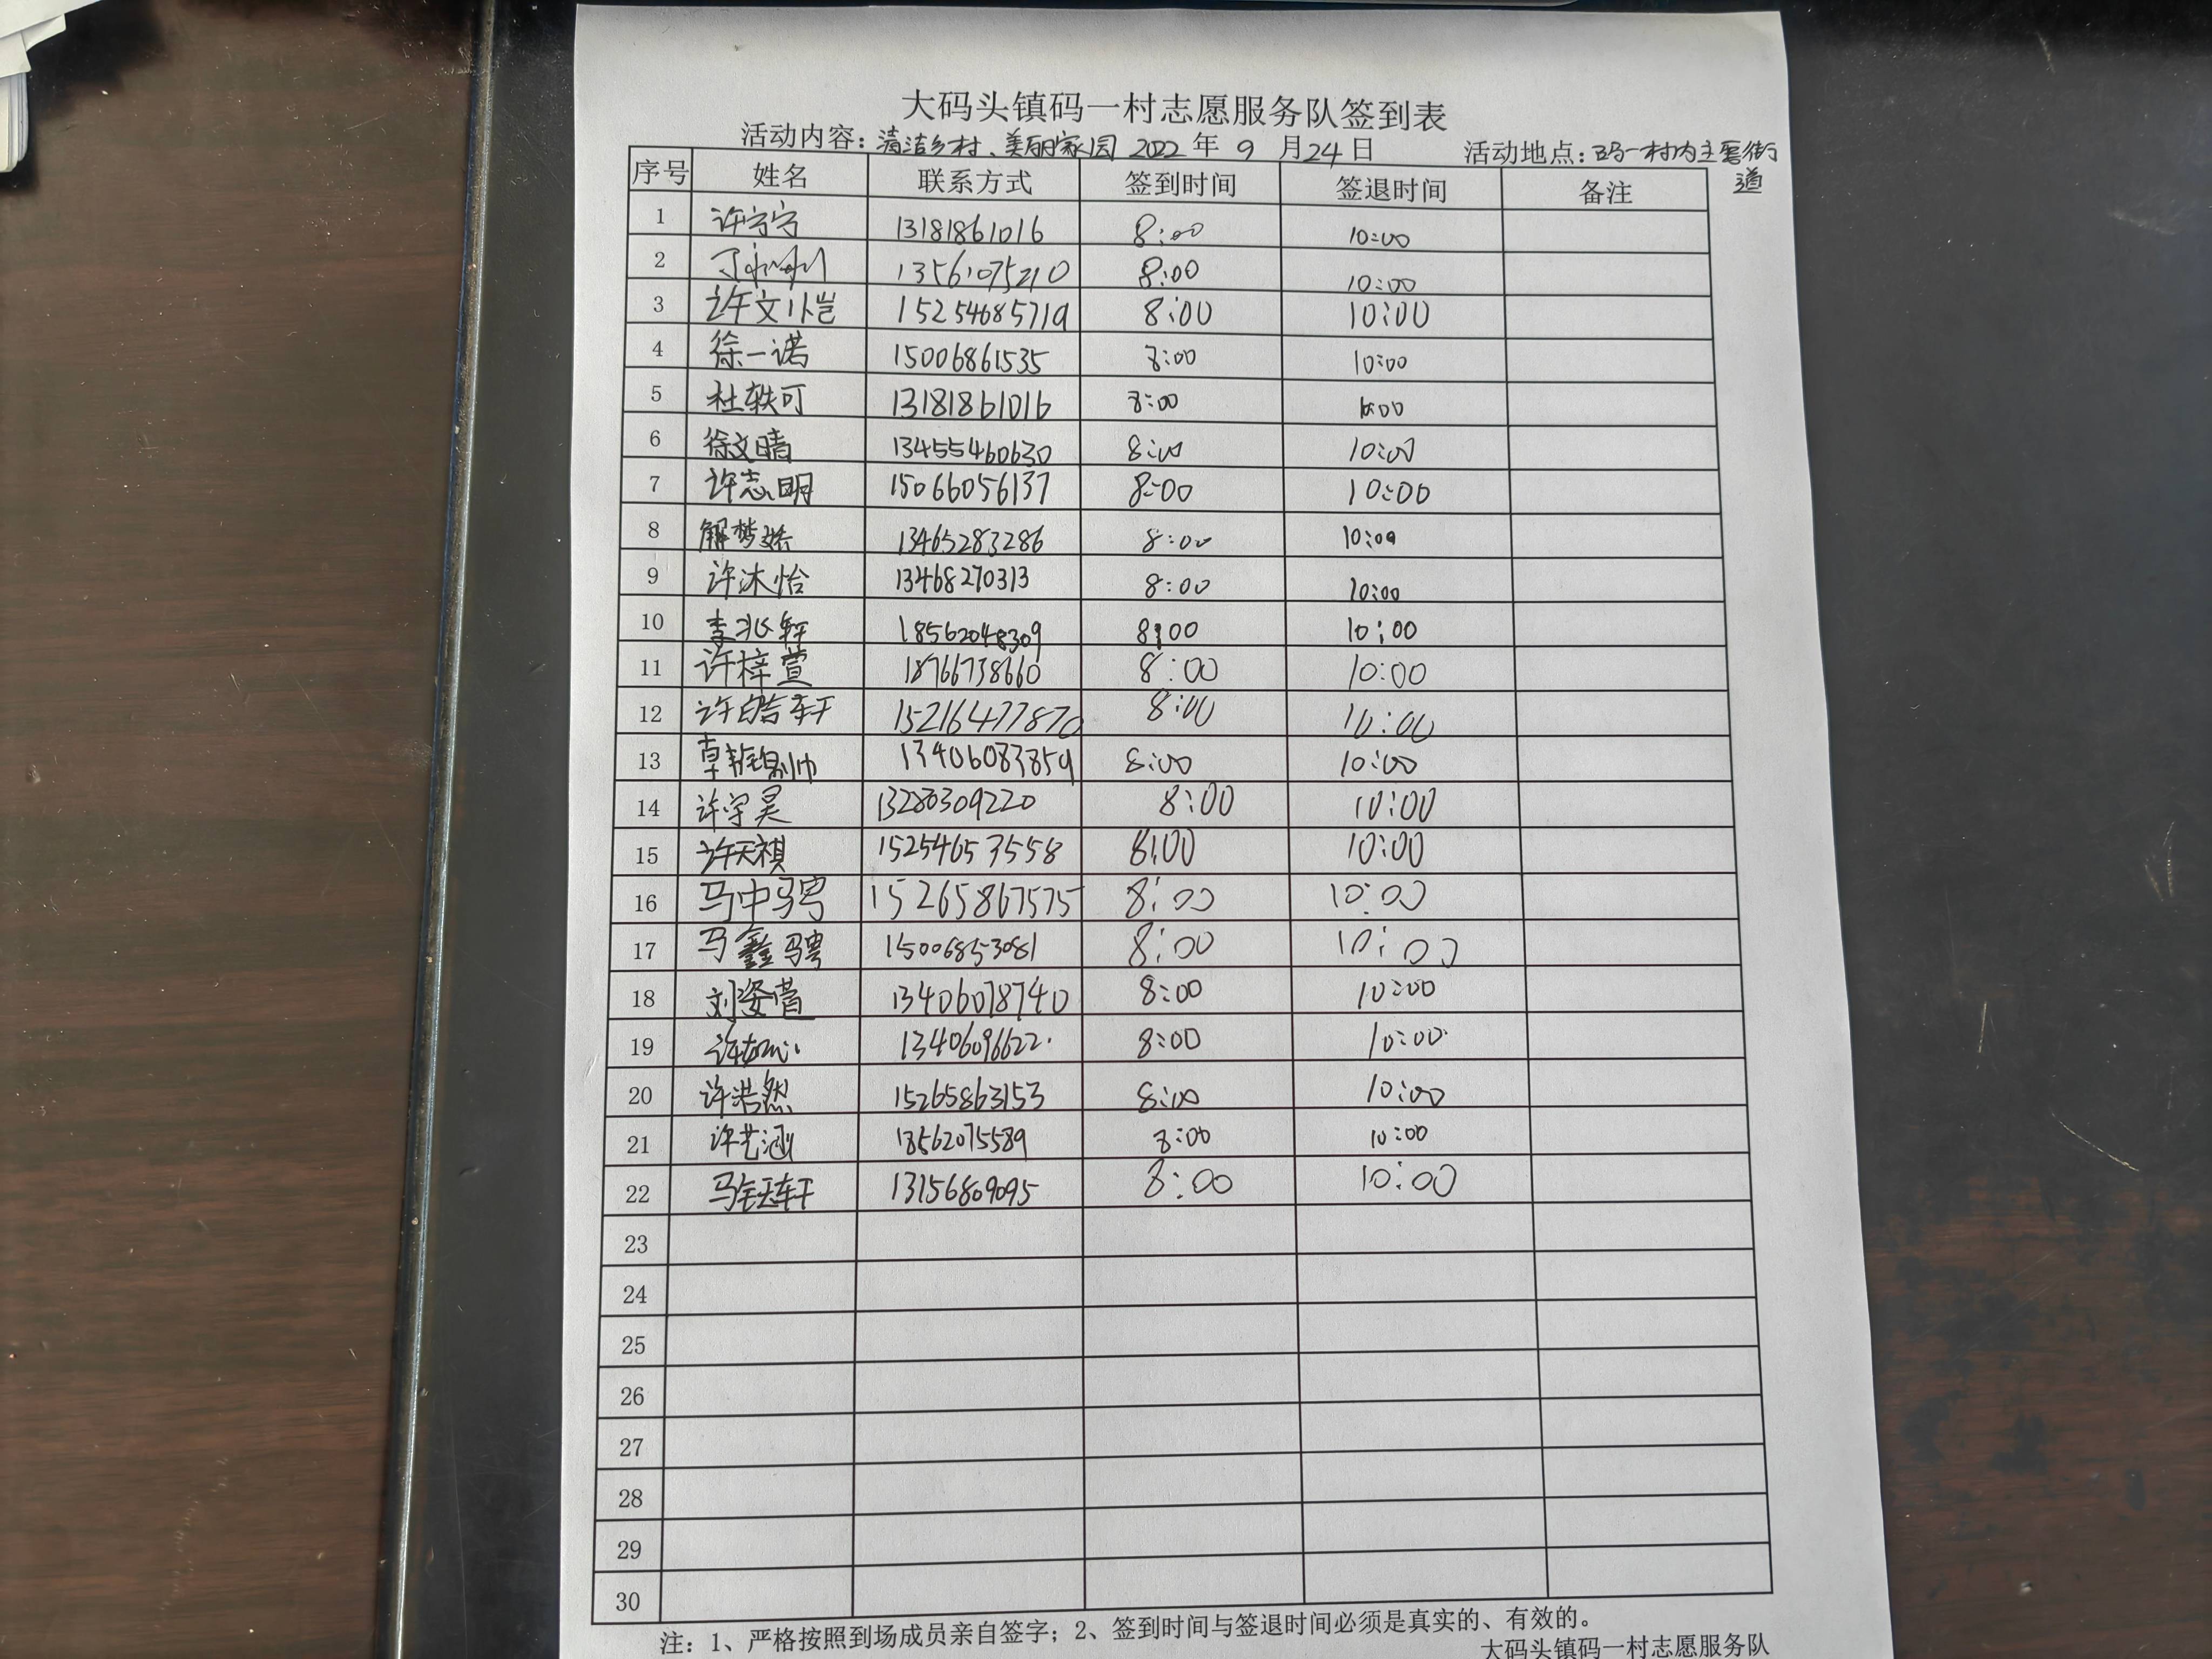 大码头镇码一村志愿服务队签到表
活动内容：清洁乡村、美丽家园 2022 年 9 月 24 日 活动地点：码一村内主要街
道
序号 姓名 联系方式 签到时间 签退时间 备注
1 许宁宁 13181861016 8:00 10:00
2 13561075210 8:00 10:00
3 许文恺 15254685719 8:00 10:00
4 徐一诺 15006861535 8:00 10:00
5 杜轶可 13181861016 8:00 10:00
6 徐文晴 13455460630 8:00 10:00
7 许志明 15066056137 8:00 10:00
8 解梦娇 13465283286 8:00 10:00
9 许沐怡 13468270313 8:00 10:00
10 李兆轩 18562048309 8:00 10:00
11 许梓萱 18766738660 8:00 10:00
12 许皓轩 15216477870 8:00 10:00
13 13406083859 8:00 10:00
14 许宇昊 13280309220 8:00 10:00
15 许天祺 15254653558 8:00 10:00
16 马中骋 15265867575 8:00 10:00
17 马鑫骋 15006853081 8:00 10:00
18 刘姿萱 13406078740 8:00 10:00
19 许如心 13406096622 8:00 10:00
20 许浩然 15265863153 8:00 10:00
21 许艺涵 18562075589 8:00 10:00
22 马钰轩 13156809095 8:00 10:00
23
24
25
26
27
28
29
30
注：1、严格按照到场成员亲自签字；2、签到时间与签退时间必须是真实的、有效的。
大码头镇码一村志愿服务队